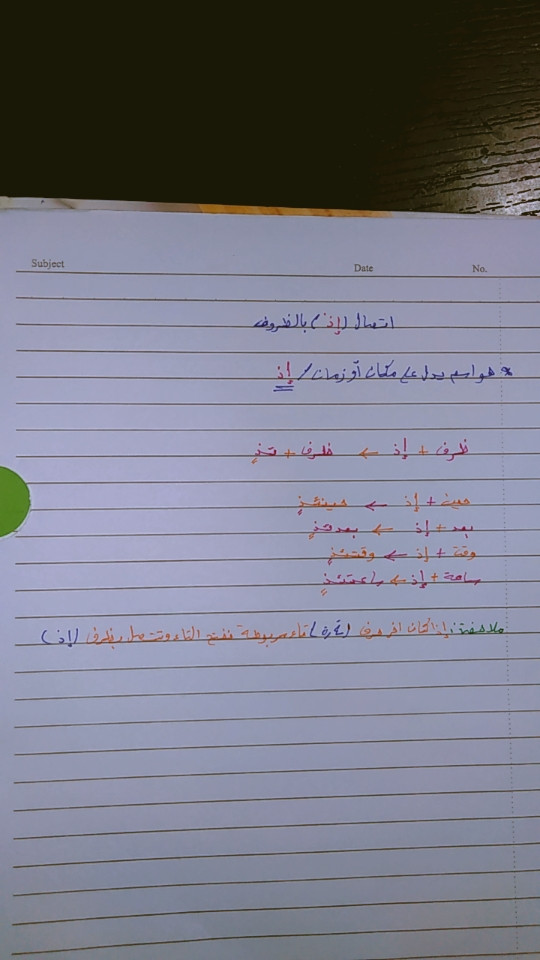 Subject Date No.
اتصال (إذ) بالظروف
* هو اسم يدل على مكان أو زمان / إذ
ظرف + إذ ← ظرف + ئذٍ
حين + إذ ← حينئذٍ
بعد + إذ ← بعدئذٍ
وقت + إذ ← وقتئذٍ
ساعة + إذ ← ساعتئذٍ
ملاحظة: إذا كان اخر حرف (ة) تاء مربوطة تفتح التاء وتتصل بظرف (إذ)